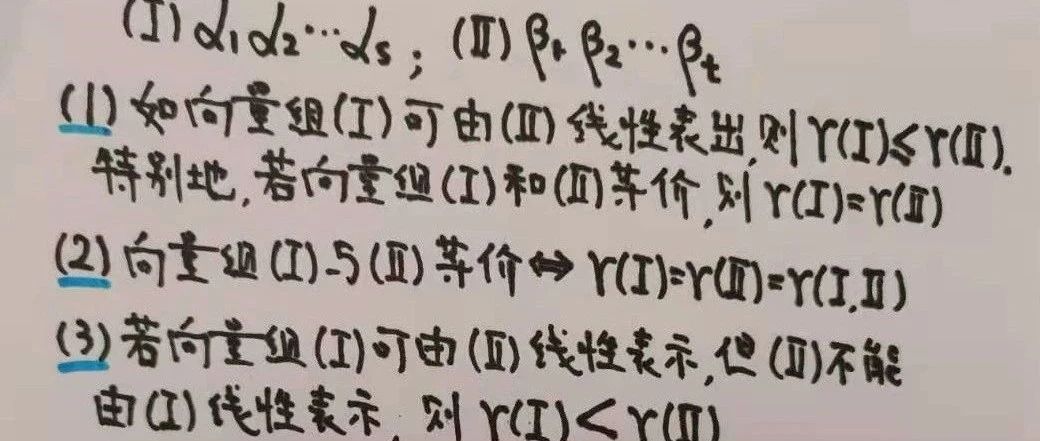 (I) α₁ α₂ ⋯ αₛ; (II) β₁ β₂ ⋯ βₜ
(1) 如向量组(I)可由(II)线性表出,则 r(I)≤r(II).
特别地,若向量组(I)和(II)等价,则 r(I)=r(II)
(2) 向量组(I)与(II)等价⇔ r(I)=r(II)=r(I,II)
(3) 若向量组(I)可由(II)线性表示,但(II)不能
由(I)线性表示,则 r(I)<r(II)